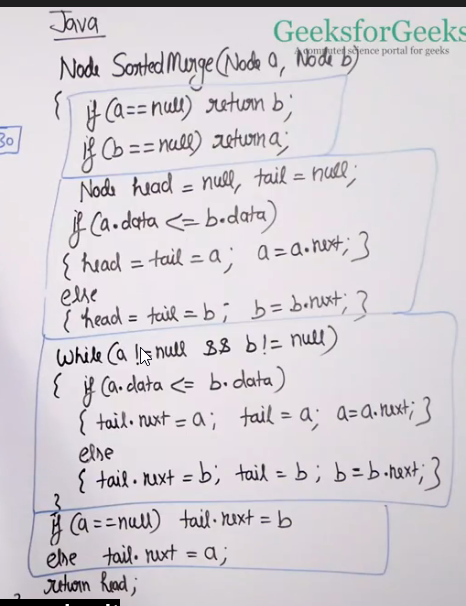 Java
GeeksforGeeks
A computer science portal for geeks
Node SortedMerge(Node a, Node b)
{ if (a==null) return b;
if (b==null) return a;
30
Node head = null, tail = null;
if (a.data <= b.data)
{ head = tail = a; a = a.next; }
else
{ head = tail = b; b = b.next; }
While (a != null && b != null)
{ if (a.data <= b.data)
{ tail.next = a; tail = a; a=a.next; }
else
{ tail.next = b; tail = b; b=b.next; }
}
if (a==null) tail.next = b
else tail.next = a;
return head;